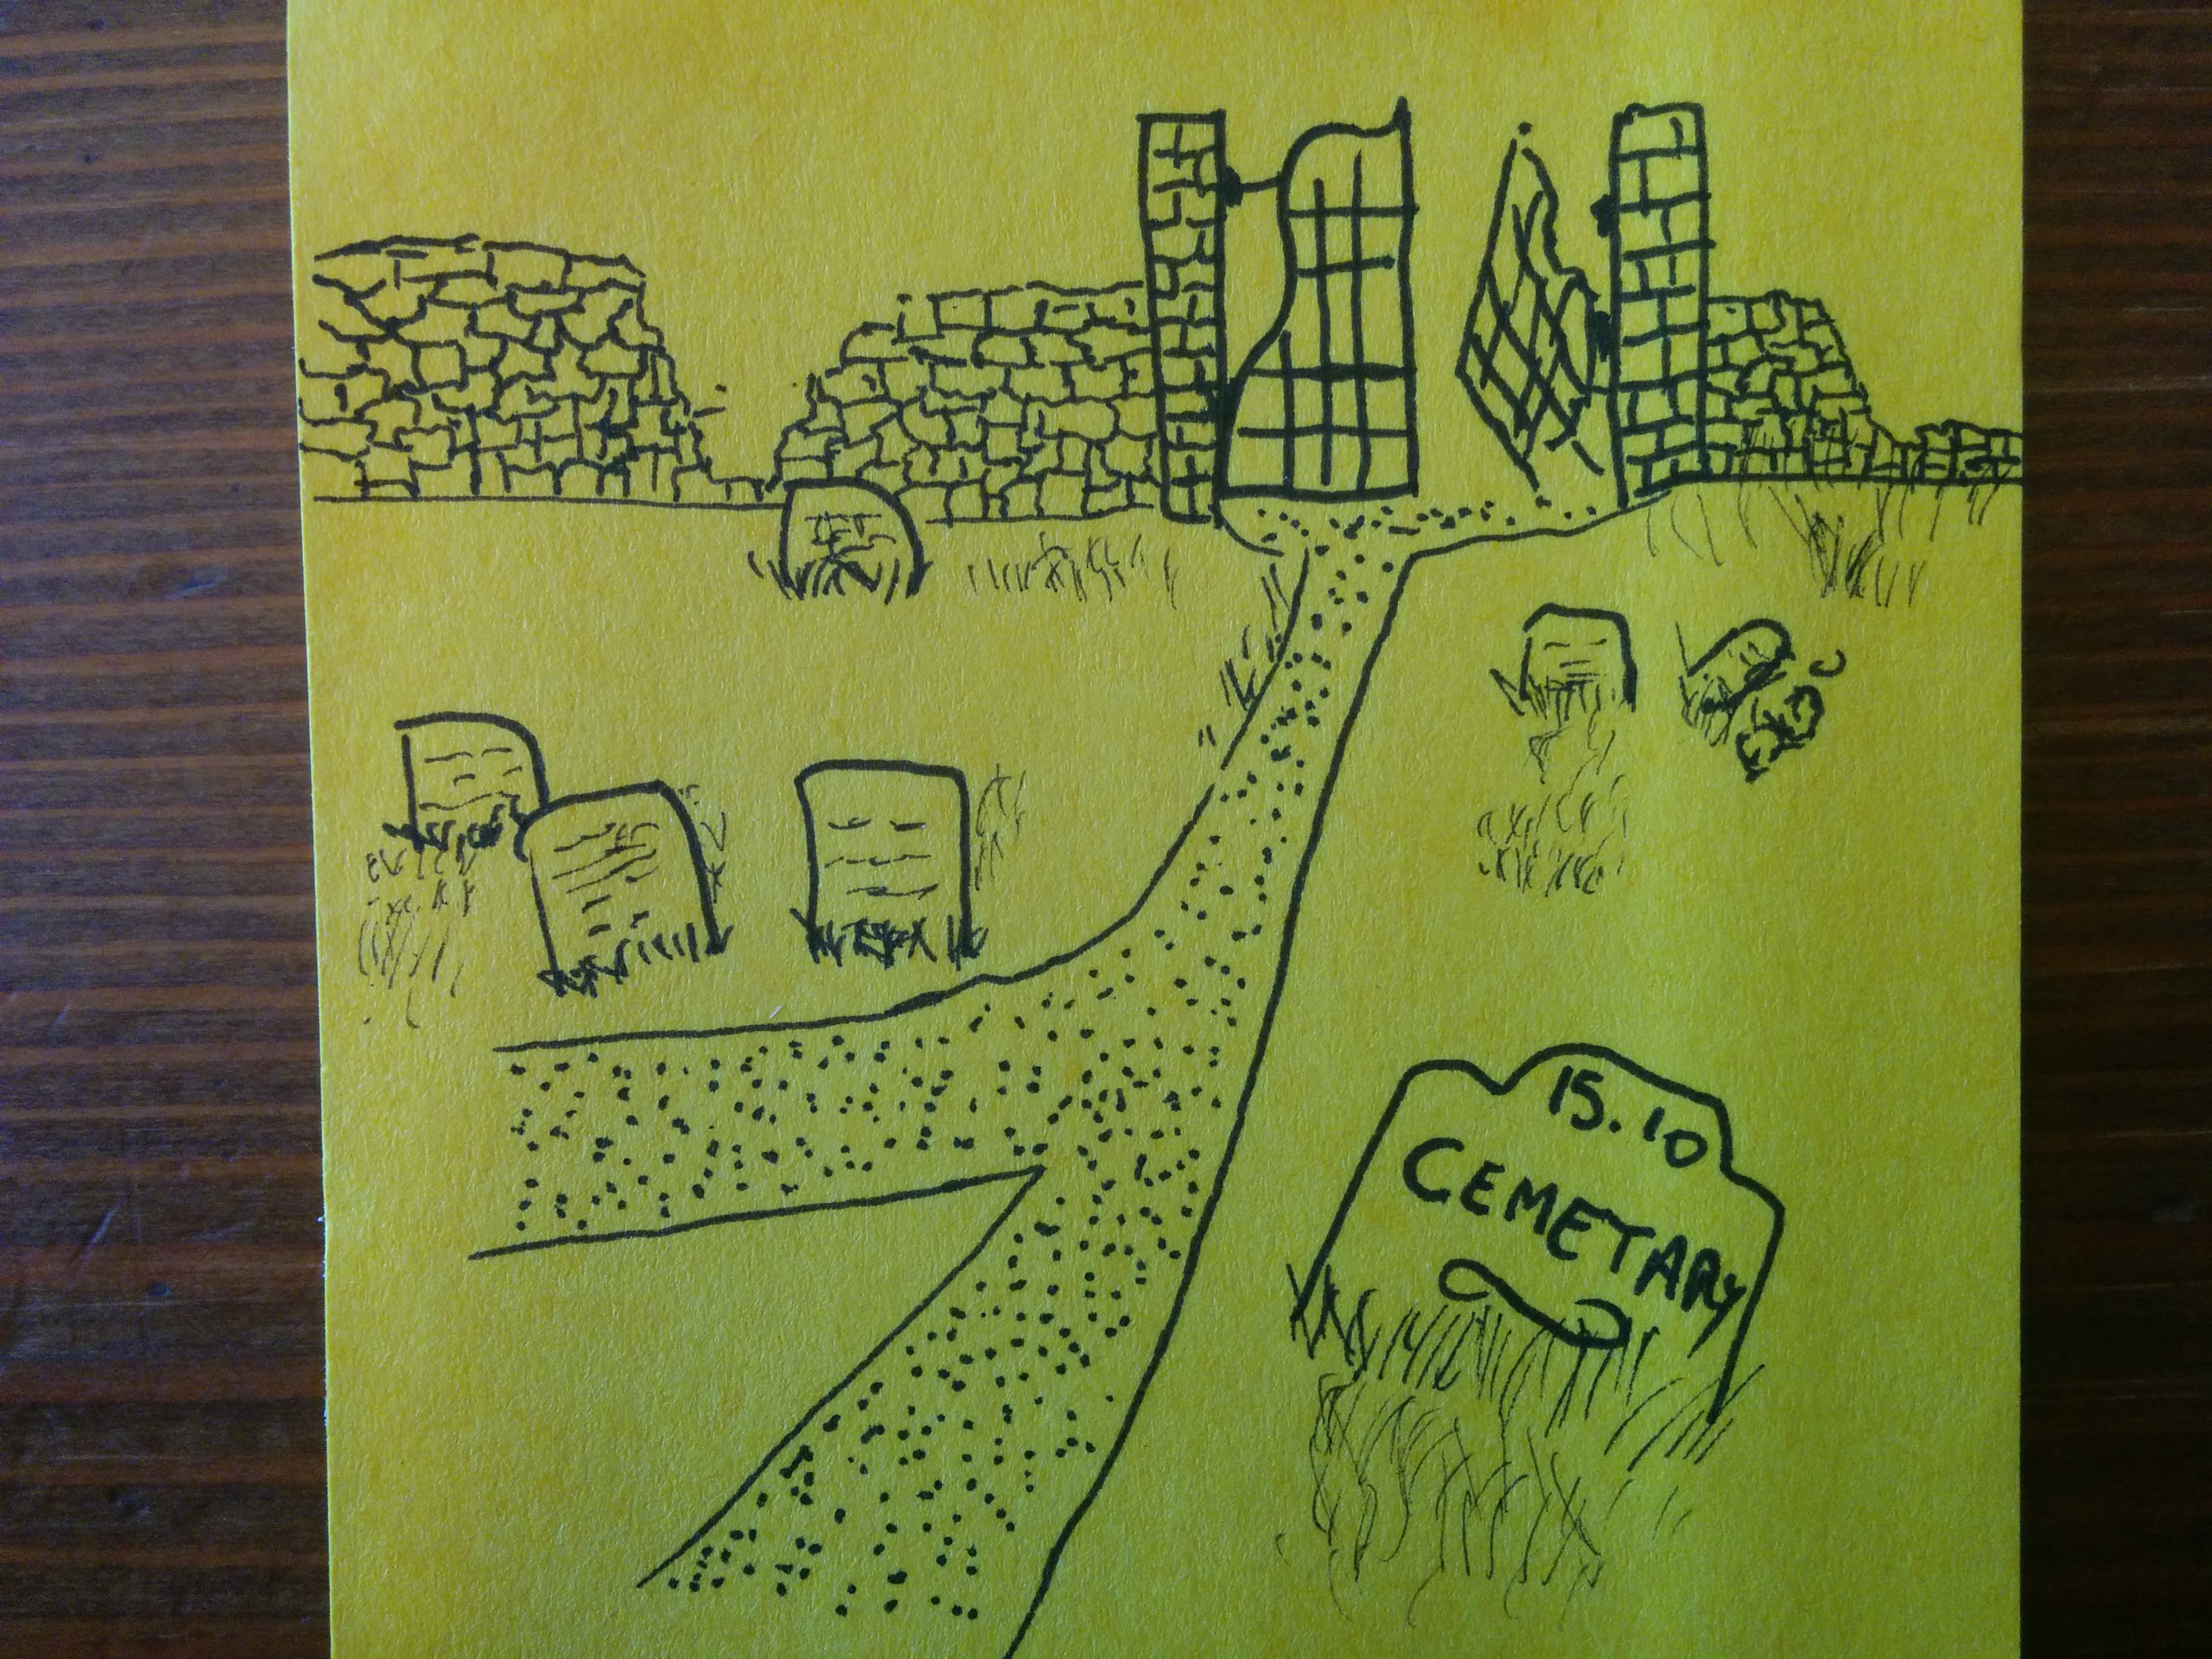 15.10
CEMETARY